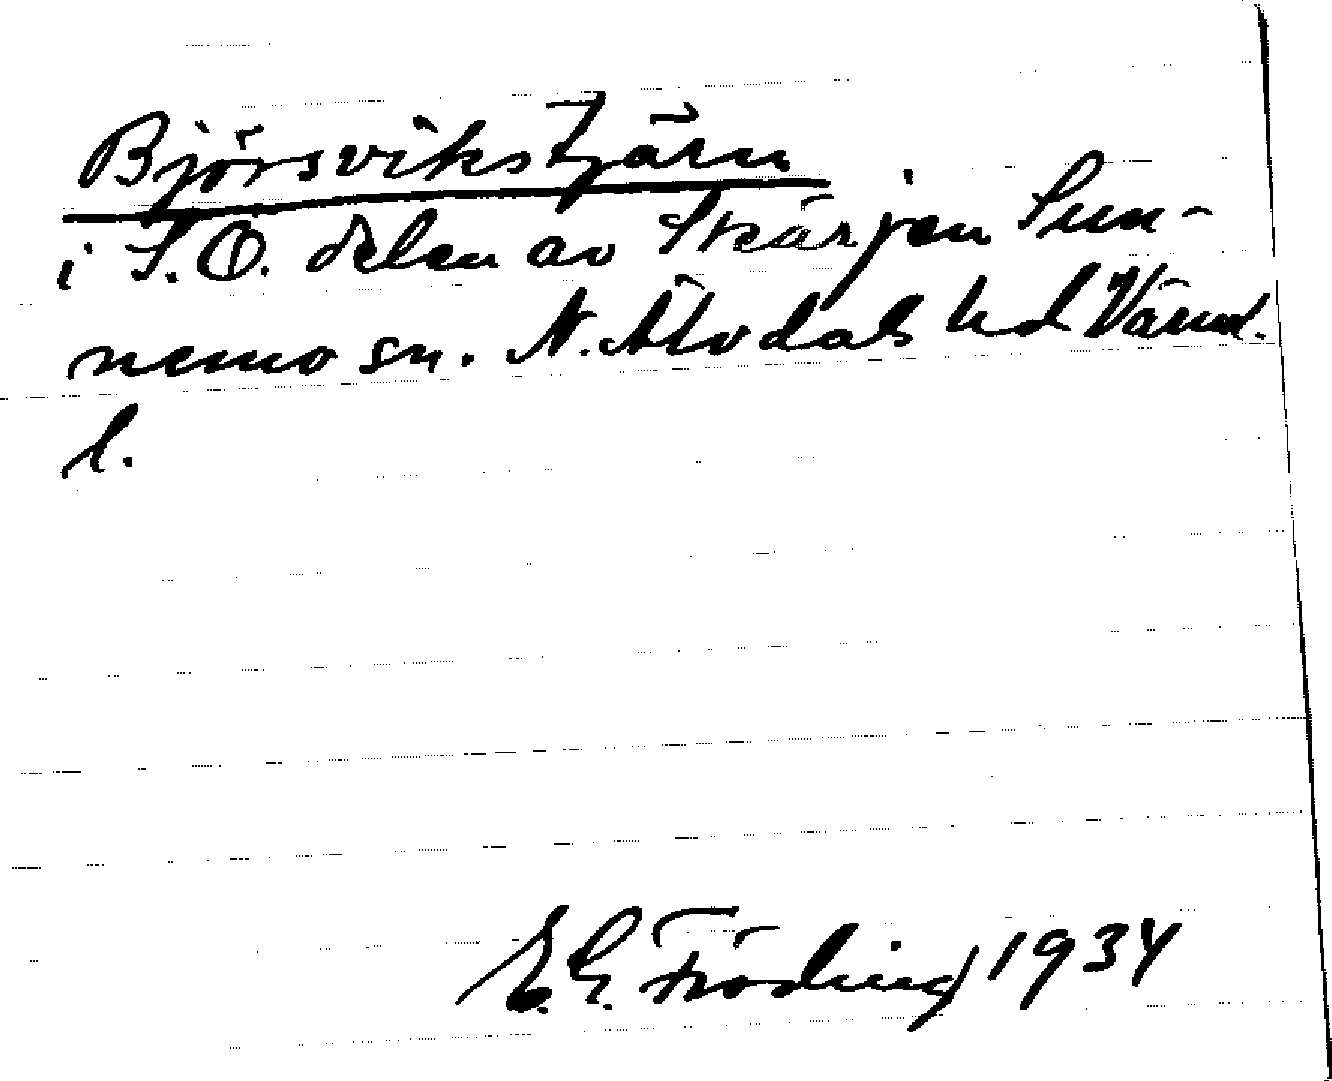 Björsvikstjärn
i S.Ö. delen av Skärjen Sun-
nemo sn. N. Älvdals hd Värml.
l.
E. G. Fröding 1934